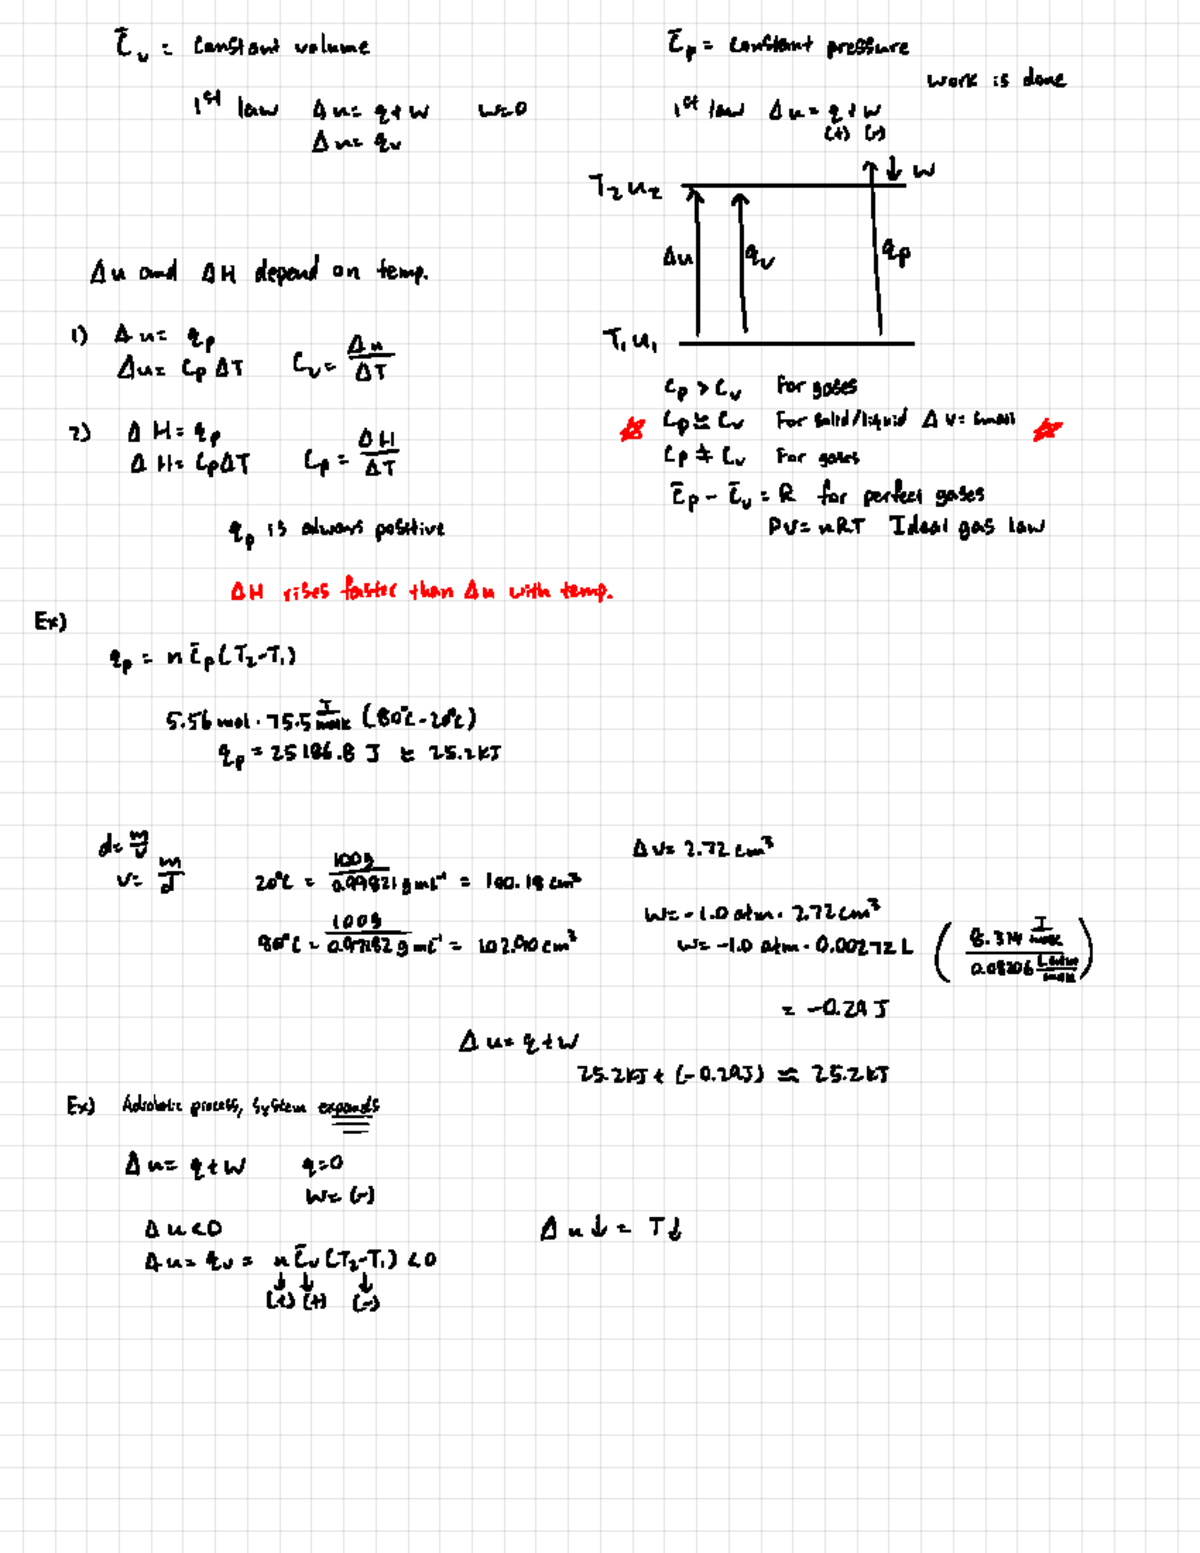 C̄v = constant volume
1st law Δu= q+w w=0
Δu= qv
C̄p = constant pressure
work is done
1st law Δu= q+w
(+) (-)
↓ w
T2 u2
Δu qv qp
T1 u1
Δu and ΔH depend on temp.
1) Δu= qp
Δu= Cp ΔT Cv= Δu/ΔT
2) ΔH= qp
ΔH= CpΔT Cp = ΔH/ΔT
qp is always positive
Cp > Cv For gases
Cp ≅ Cv For solid/liquid Δv= small
Cp ≠ Cv For gases
C̄p - C̄v = R for perfect gases
PV= nRT Ideal gas law
ΔH rises faster than Δu with temp.
Ex)
qp = n C̄p(T2-T1)
5.56 mol · 75.5 J/molK (80°C-20°C)
qp = 25186.8 J ≈ 25.2KJ
d= m/v
v= m/d
20°C = 100g/0.99821 g mL⁻¹ = 100.18 cm³
80°C = 100g/0.97182 g mL⁻¹ = 102.90 cm³
Δv= 2.72 cm³
W= -1.0 atm · 2.72 cm³
w= -1.0 atm · 0.00272 L (8.314 J/molK / 0.08206 Latm/molK)
= -0.29 J
Δu= q+w
25.2KJ + (-0.29J) ≈ 25.2KJ
Ex) Adiabatic process, system expands
Δu= q+w q=0
w= (-)
Δu<0
Δu↓ = T↓
Δu= qv = n C̄v (T2-T1) <0
(+) (+) (-)